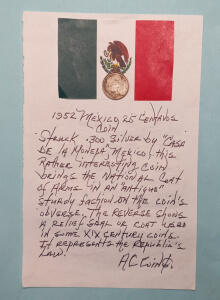 1952 Mexico, 25 Centavos
Coin
Struck .300 Silver by "Casa
De la Moneda, Mexico, this
Rather interesting coin
brings the National Coat
of Arms in an "Antique"
sturdy faction on the coin's
obverse. The reverse shows
a relief seal or coat used
in some XIX century coins.
It represents the Republic's
Law!
AC Coin$.